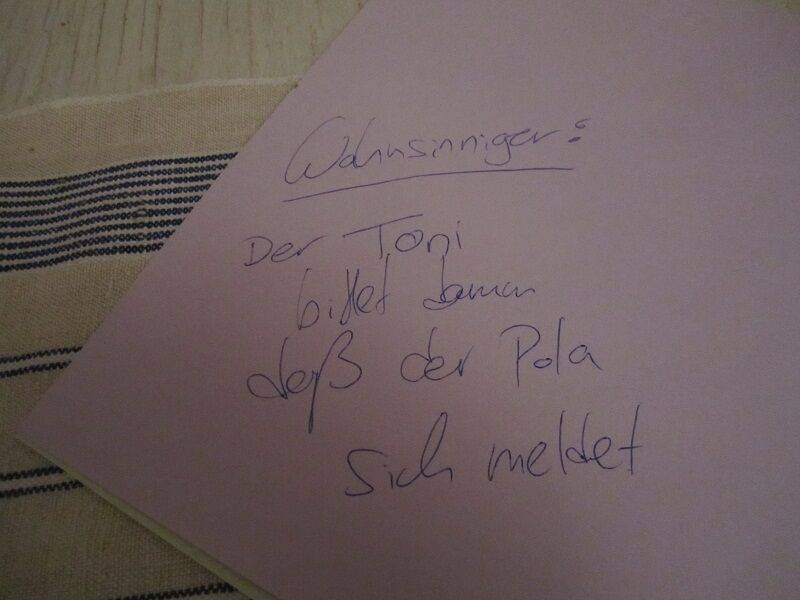 Wahnsinniger:
Der Toni
bittet darum
daß der Pola
sich meldet